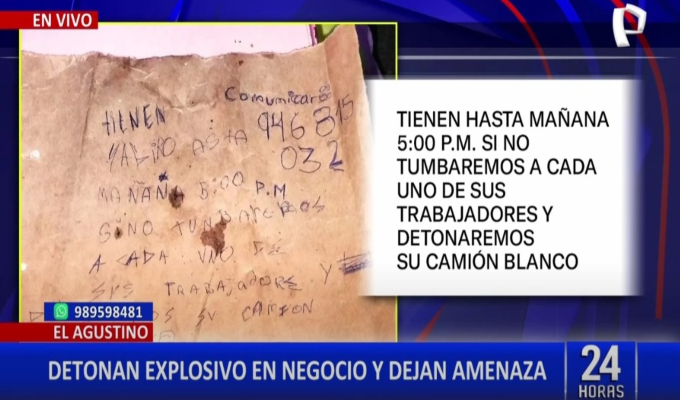 EN VIVO
Comunicar
TIENEN
946 815
032
MAÑANA 5:00 P.M
SINO
A CADA UNO DE
SUS TRABAJADORES Y
SU CAMION
TIENEN HASTA MAÑANA
5:00 P.M. SI NO
TUMBAREMOS A CADA
UNO DE SUS
TRABAJADORES Y
DETONAREMOS
SU CAMIÓN BLANCO
989598481
EL AGUSTINO
DETONAN EXPLOSIVO EN NEGOCIO Y DEJAN AMENAZA
24
HORAS